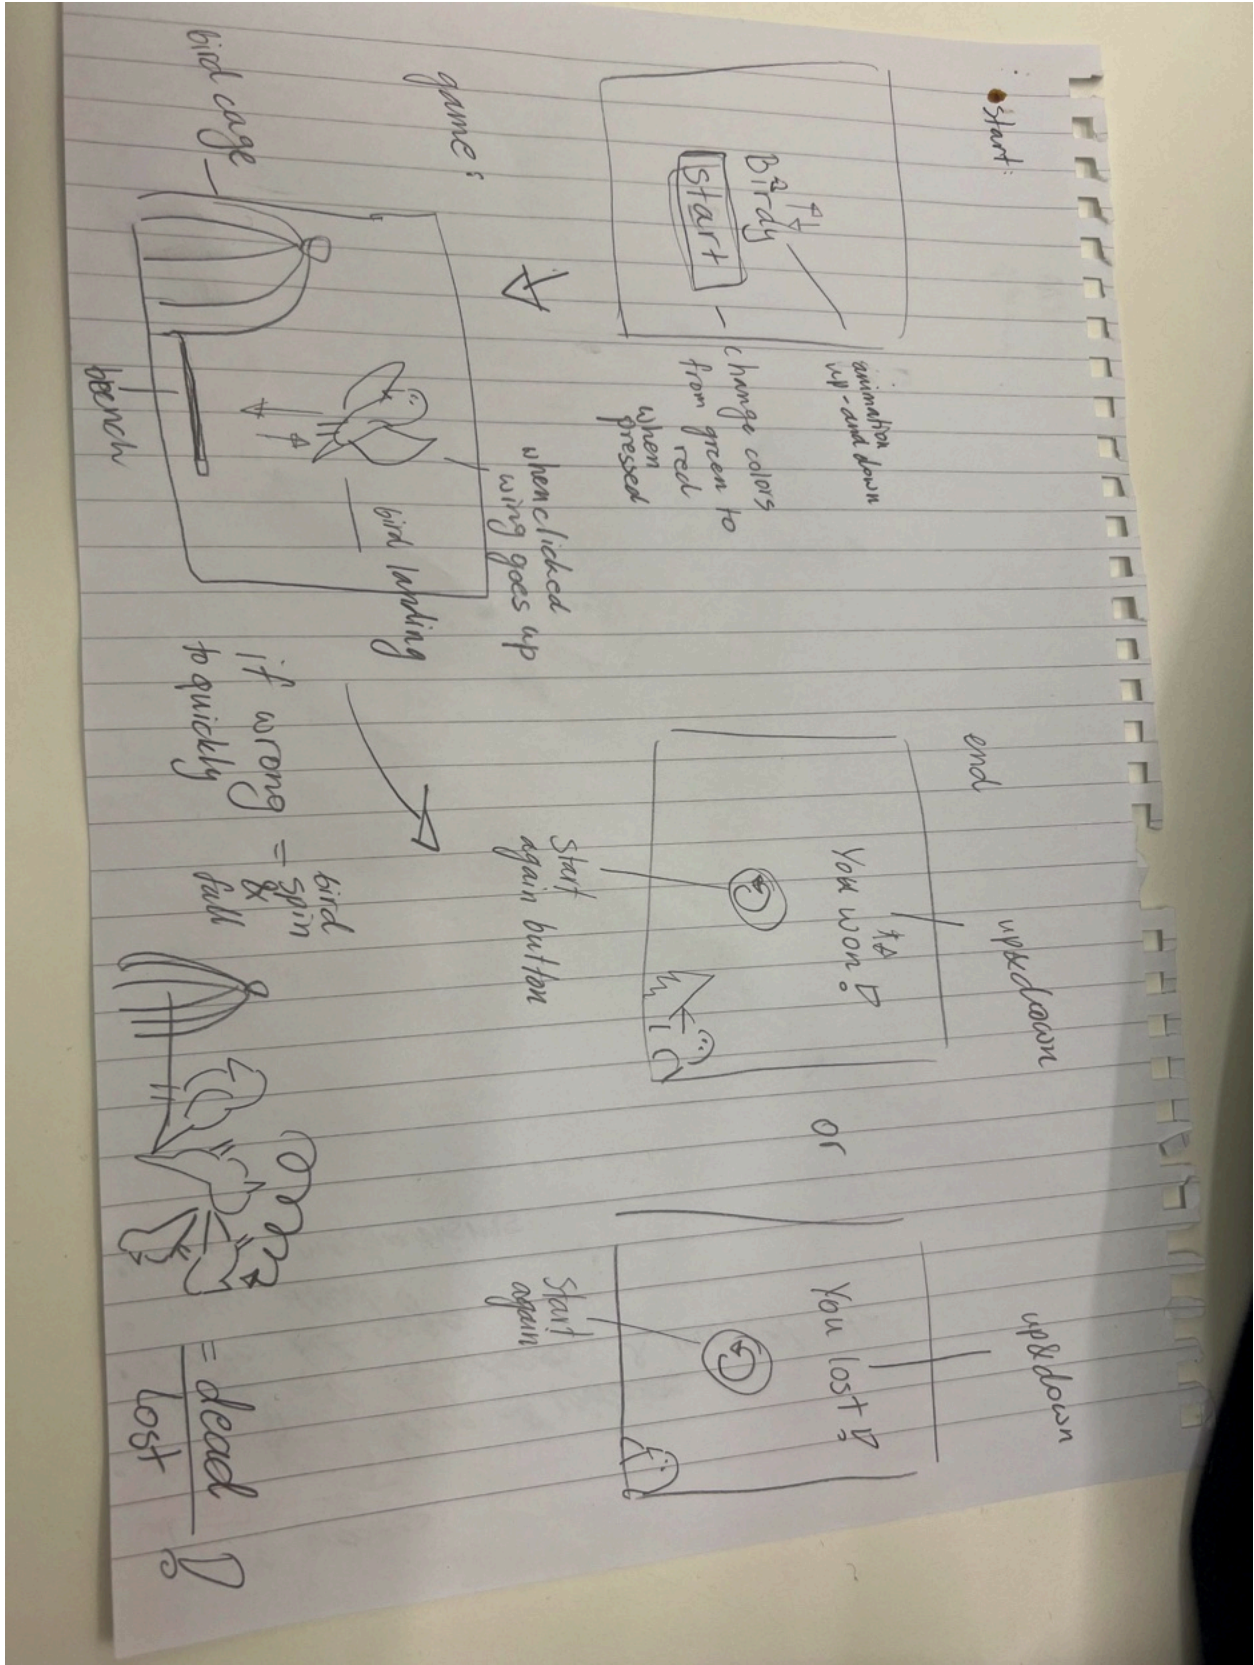 start:
Birdy
Start
animation
up-and down
change colors
from green to
red
when
pressed
game:
bird cage
bench
when clicked
wing goes up
bird landing
if wrong = bird
to quickly spin
&
fall
= dead
lost!
end
up&down
You won!
Start
again button
or
up&down
You lost!
Start
again